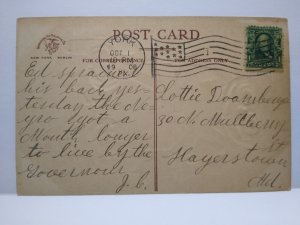 POST CARD
NEW YORK BERLIN
FOR CORRESPONDENCE
FOR ADDRESS ONLY
YORK
OCT 1
PA.
Ed sprained
his back yes-
terday the ne-
gro got a
Month longer
to live by the
Governour
J. C.
Lottie Doomberge
30 N. Mulberry
st
Hagerstown
Md.